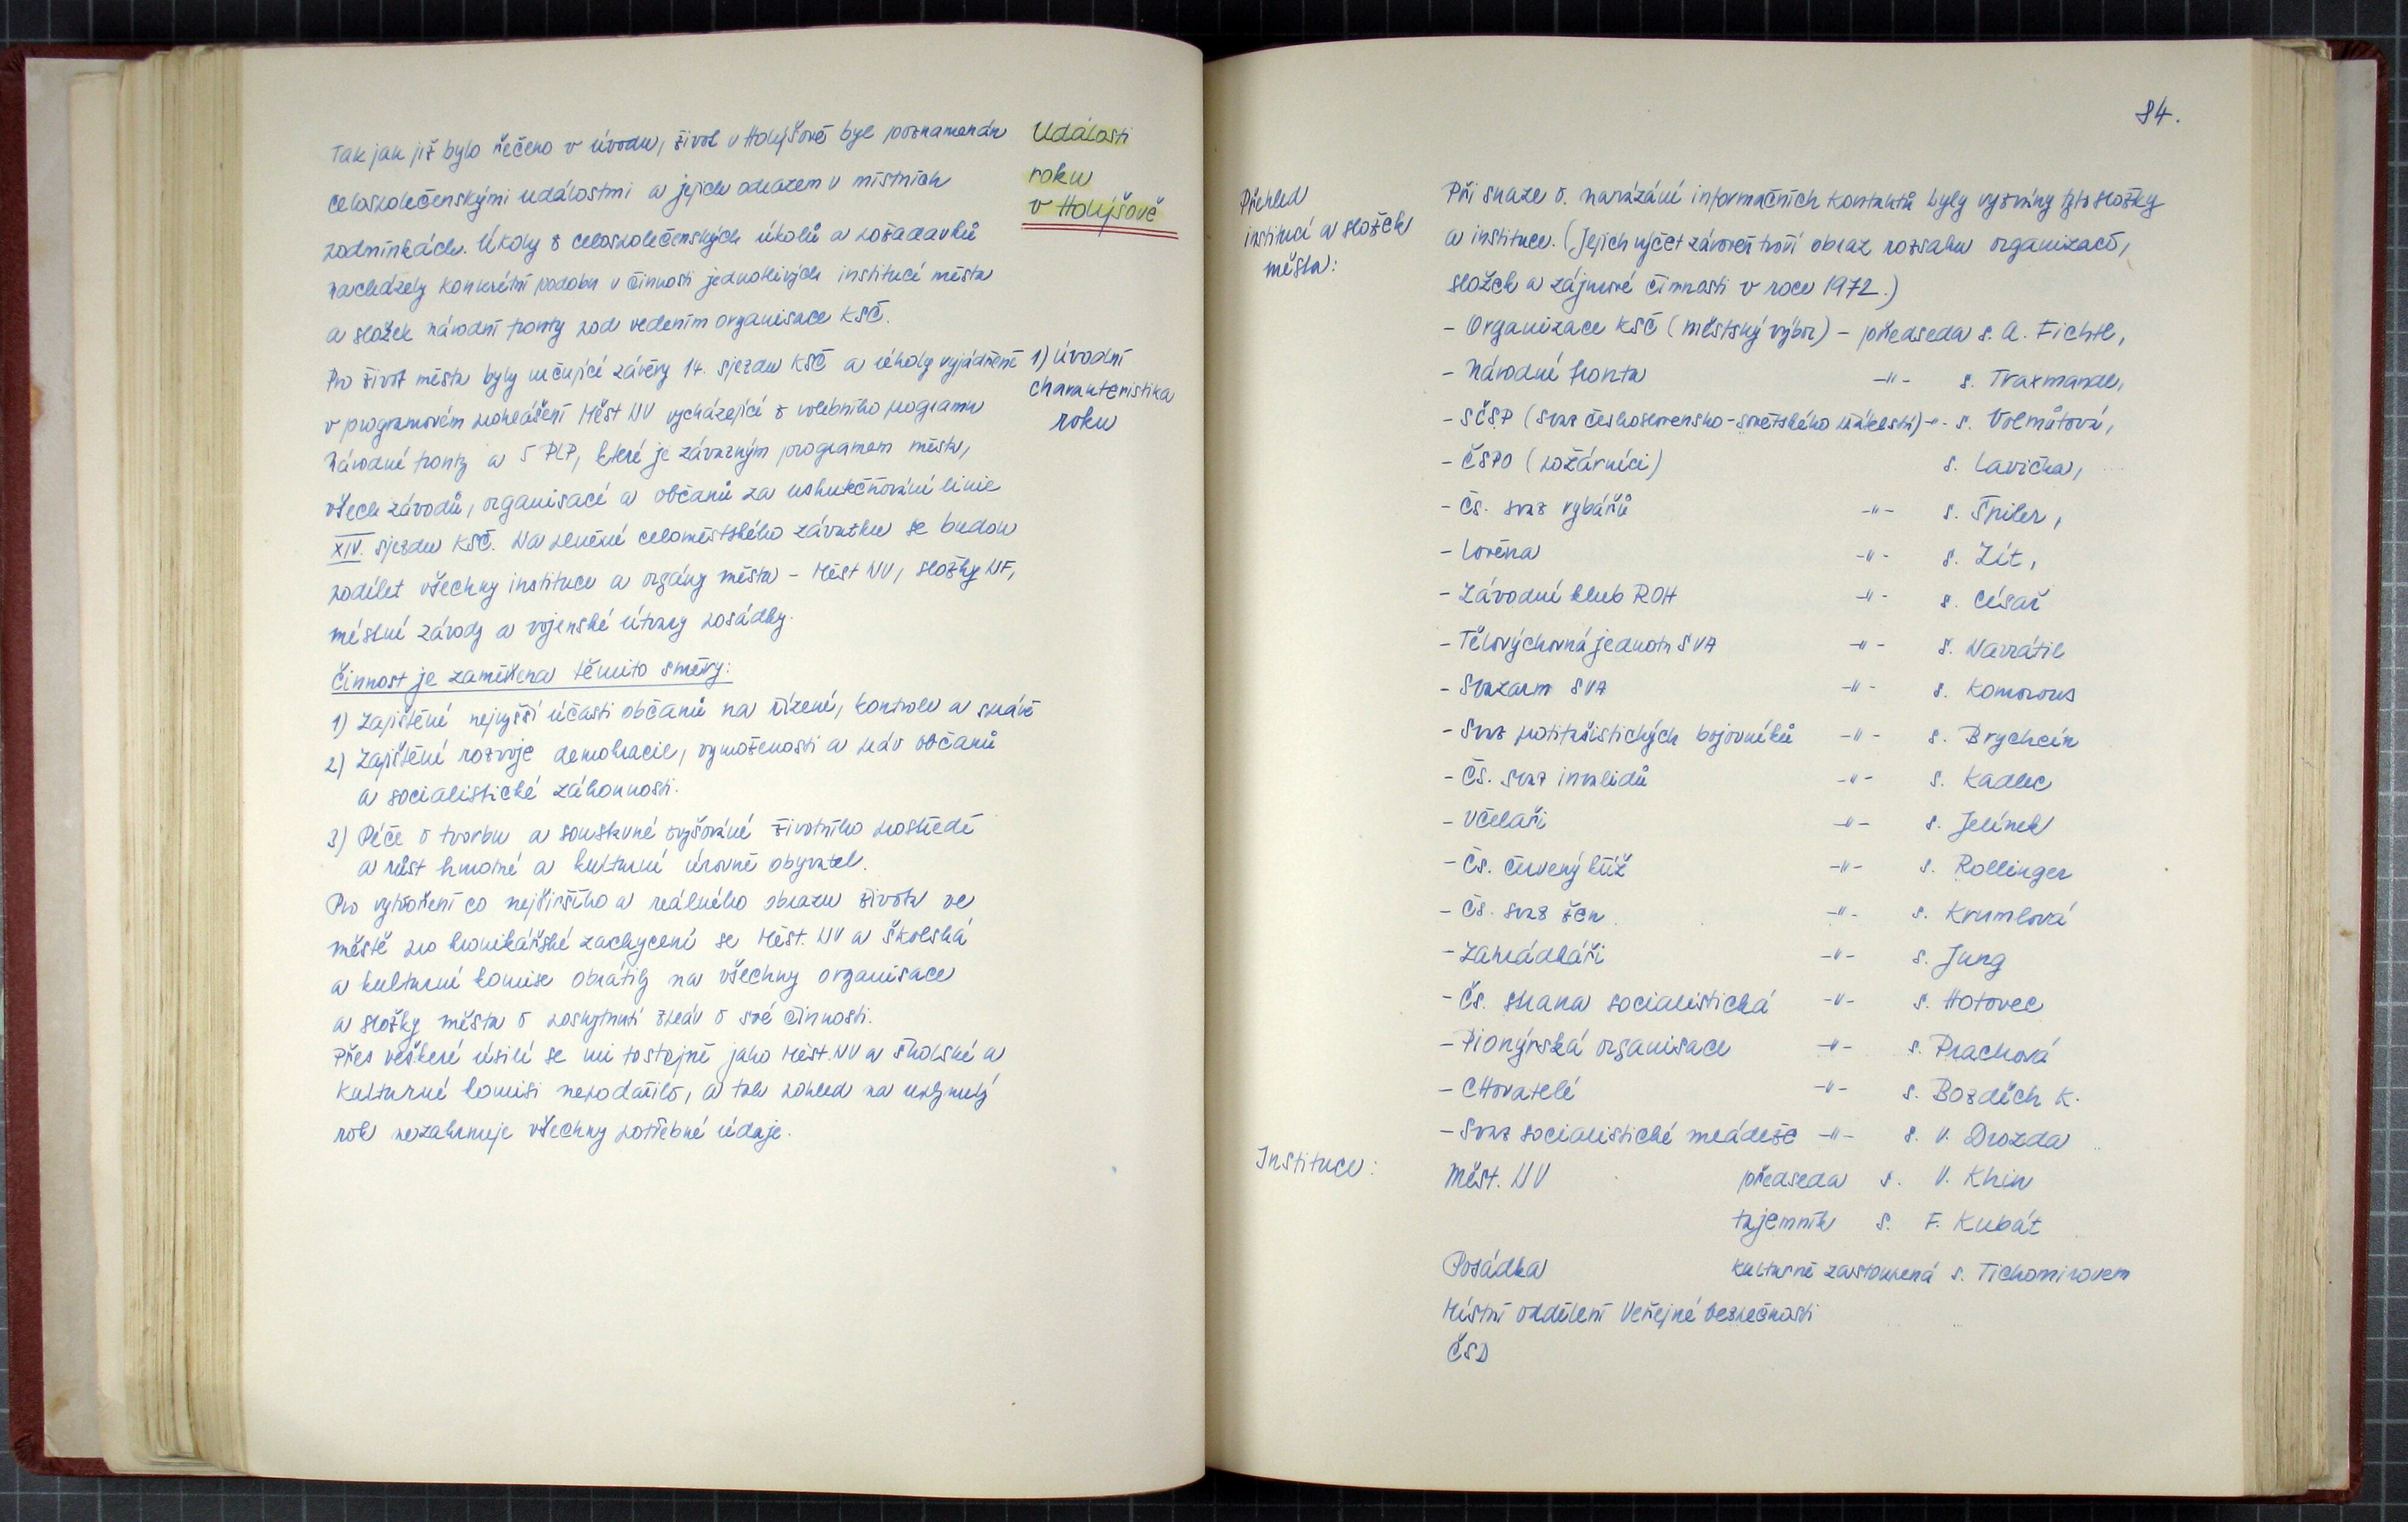 Tak jak již bylo řečeno v úvodu, život v Holýšově byl poznamenán
celospolečenskými událostmi a jejich odrazem v místních
podmínkách. Úkoly z celospolečenských úkolů a požadavků
nacházely konkrétní podobu v činnosti jednotlivých institucí města
a složek národní fronty pod vedením organisace KSČ.
Pro život města byly určující závěry 14. sjezdu KSČ a úkoly vyjádřené
v programovém prohlášení Měst NV vycházející z volebního programu
Národní fronty a 5 PLP, které je závazným programem města,
všech závodů, organisací a občanů za uskutečňování linie
XIV. sjezdu KSČ. Na plnění celoměstského závazku se budou
podílet všechny instituce a orgány města - Měst NV, složky NF,
místní závody a vojenské útvary posádky.
Činnost je zaměřena těmito směry:
1) Zajištění nejvyšší účasti občanů na řízení, kontrole a správě
2) Zajištění rozvoje demokracie, vymožeností a práv občanů
a socialistické zákonnosti.
3) Péče o tvorbu a soustavné zvyšování životního prostředí
a růst hmotné a kulturní úrovně obyvatel.
Pro vytvoření co nejširšího a reálného obrazu života ve
městě pro kronikářské zachycení se Měst. NV a školská
a kulturní komise obrátily na všechny organisace
a složky města o poskytnutí zpráv o své činnosti.
Přes veškeré úsilí se mi to stejně jako Měst. NV a školské a
kulturní komisi nepodařilo, a tak pohled na uplynulý
rok nezahrnuje všechny potřebné údaje.
Události
roku
v Holýšově
1) Úvodní
charakteristika
roku
84.
Přehled
institucí a složek
města:
Při snaze o navázání informačních kontaktů byly vyzvány tyto složky
a instituce. (Jejich výčet zároveň tvoří obraz rozsahu organizací,
složek a zájmové činnosti v roce 1972.)
- Organizace KSČ (městský výbor) - předseda s. A. Fichtl,
- Národní fronta -"- s. Traxmandl,
- SČSP (Svaz československo-sovětského přátelství) -"- s. Volmútová,
- ČSPO (požárníci) s. Lavička,
- Čs. svaz rybářů -"- s. Špiler,
- Lověna -"- s. Zít,
- Závodní klub ROH -"- s. Císař
- Tělovýchovná jednota SVA -"- s. Navrátil
- Svazarm SVA -"- s. Komorous
- Svaz protifašistických bojovníků -"- s. Brychcín
- Čs. svaz invalidů -"- s. Kadlec
- Včelaři -"- s. Jelínek
- Čs. červený kříž -"- s. Rollinger
- Čs. svaz žen -"- s. Krumlová
- Zahrádkáři -"- s. Jung
- Čs. strana socialistická -"- s. Hotovec
- Pionýrská organisace -"- s. Prachová
- Chovatelé -"- s. Bozděch K.
- Svaz socialistické mládeže -"- s. V. Drozda
Instituce:
Měst. NV předseda s. V. Khin
tajemník s. F. Kubát
Posádka kulturně zastoupená s. Tichomirovem
Místní oddělení Veřejné bezpečnosti
ČSD